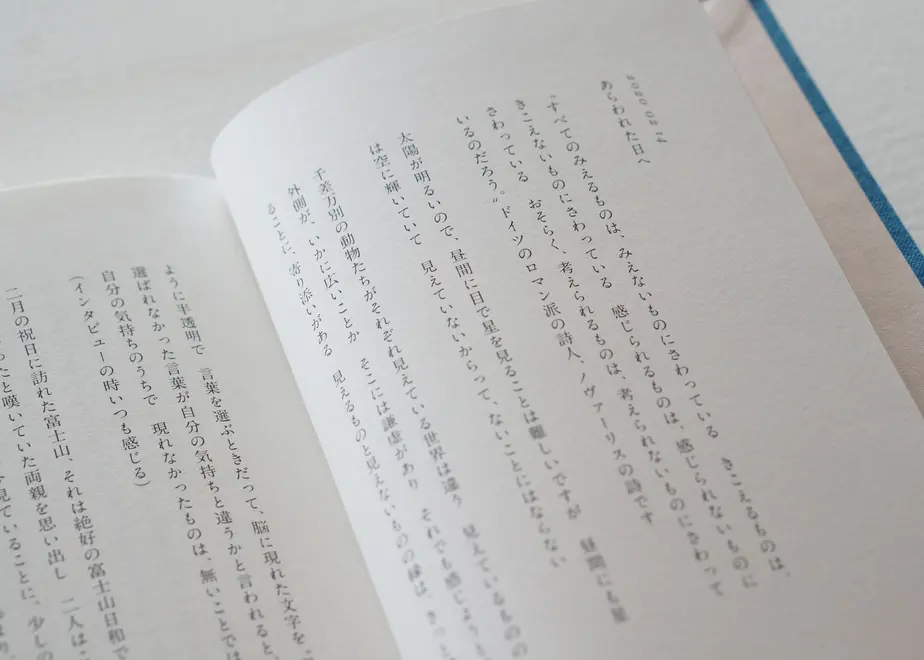 あらわれた日へ
“すべてのみえるものは、みえないものにさわっている　きこえるものは、
きこえないものにさわっている　感じられるものは、感じられないものに
さわっている　おそらく、考えられるものは、考えられないものにさわって
いるのだろう。”ドイツのロマン派の詩人、ノヴァーリスの詩です
太陽が明るいので、昼間に目で星を見ることは難しいですが　昼間にも星
は空に輝いていて　見えていないからって、ないことにはならない
千差万別の動物たちがそれぞれ見えている世界は違う　見えているものの
外側が、いかに広いことか　そこには謙虚があり　それでも感じようと
ることに、寄り添いがある　見えるものと見えないものの縁は、
ように半透明で　言葉を選ぶときだって、脳に現れた文字を
選ばれなかった言葉が自分の気持ちと違うかと言われると、
自分の気持ちのうちで　現れなかったものは、無いことでは
（インタビューの時いつも感じる）
二月の祝日に訪れた富士山、それは絶好の富士山日和で
ったと嘆いていた両親を思い出し　二人は
見ていることに、少しの